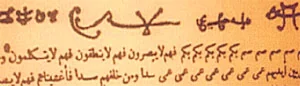 صم صم صم صم بكم بكم بكم بكم بكم فهم لا يبصرون فهم لا ينطقون فهم لا يتكلمون و
بين أيديهم عمى عمى عمى عمى عمى عمى سدا ومن خلفهم سدا فأغشيناهم فهم لا